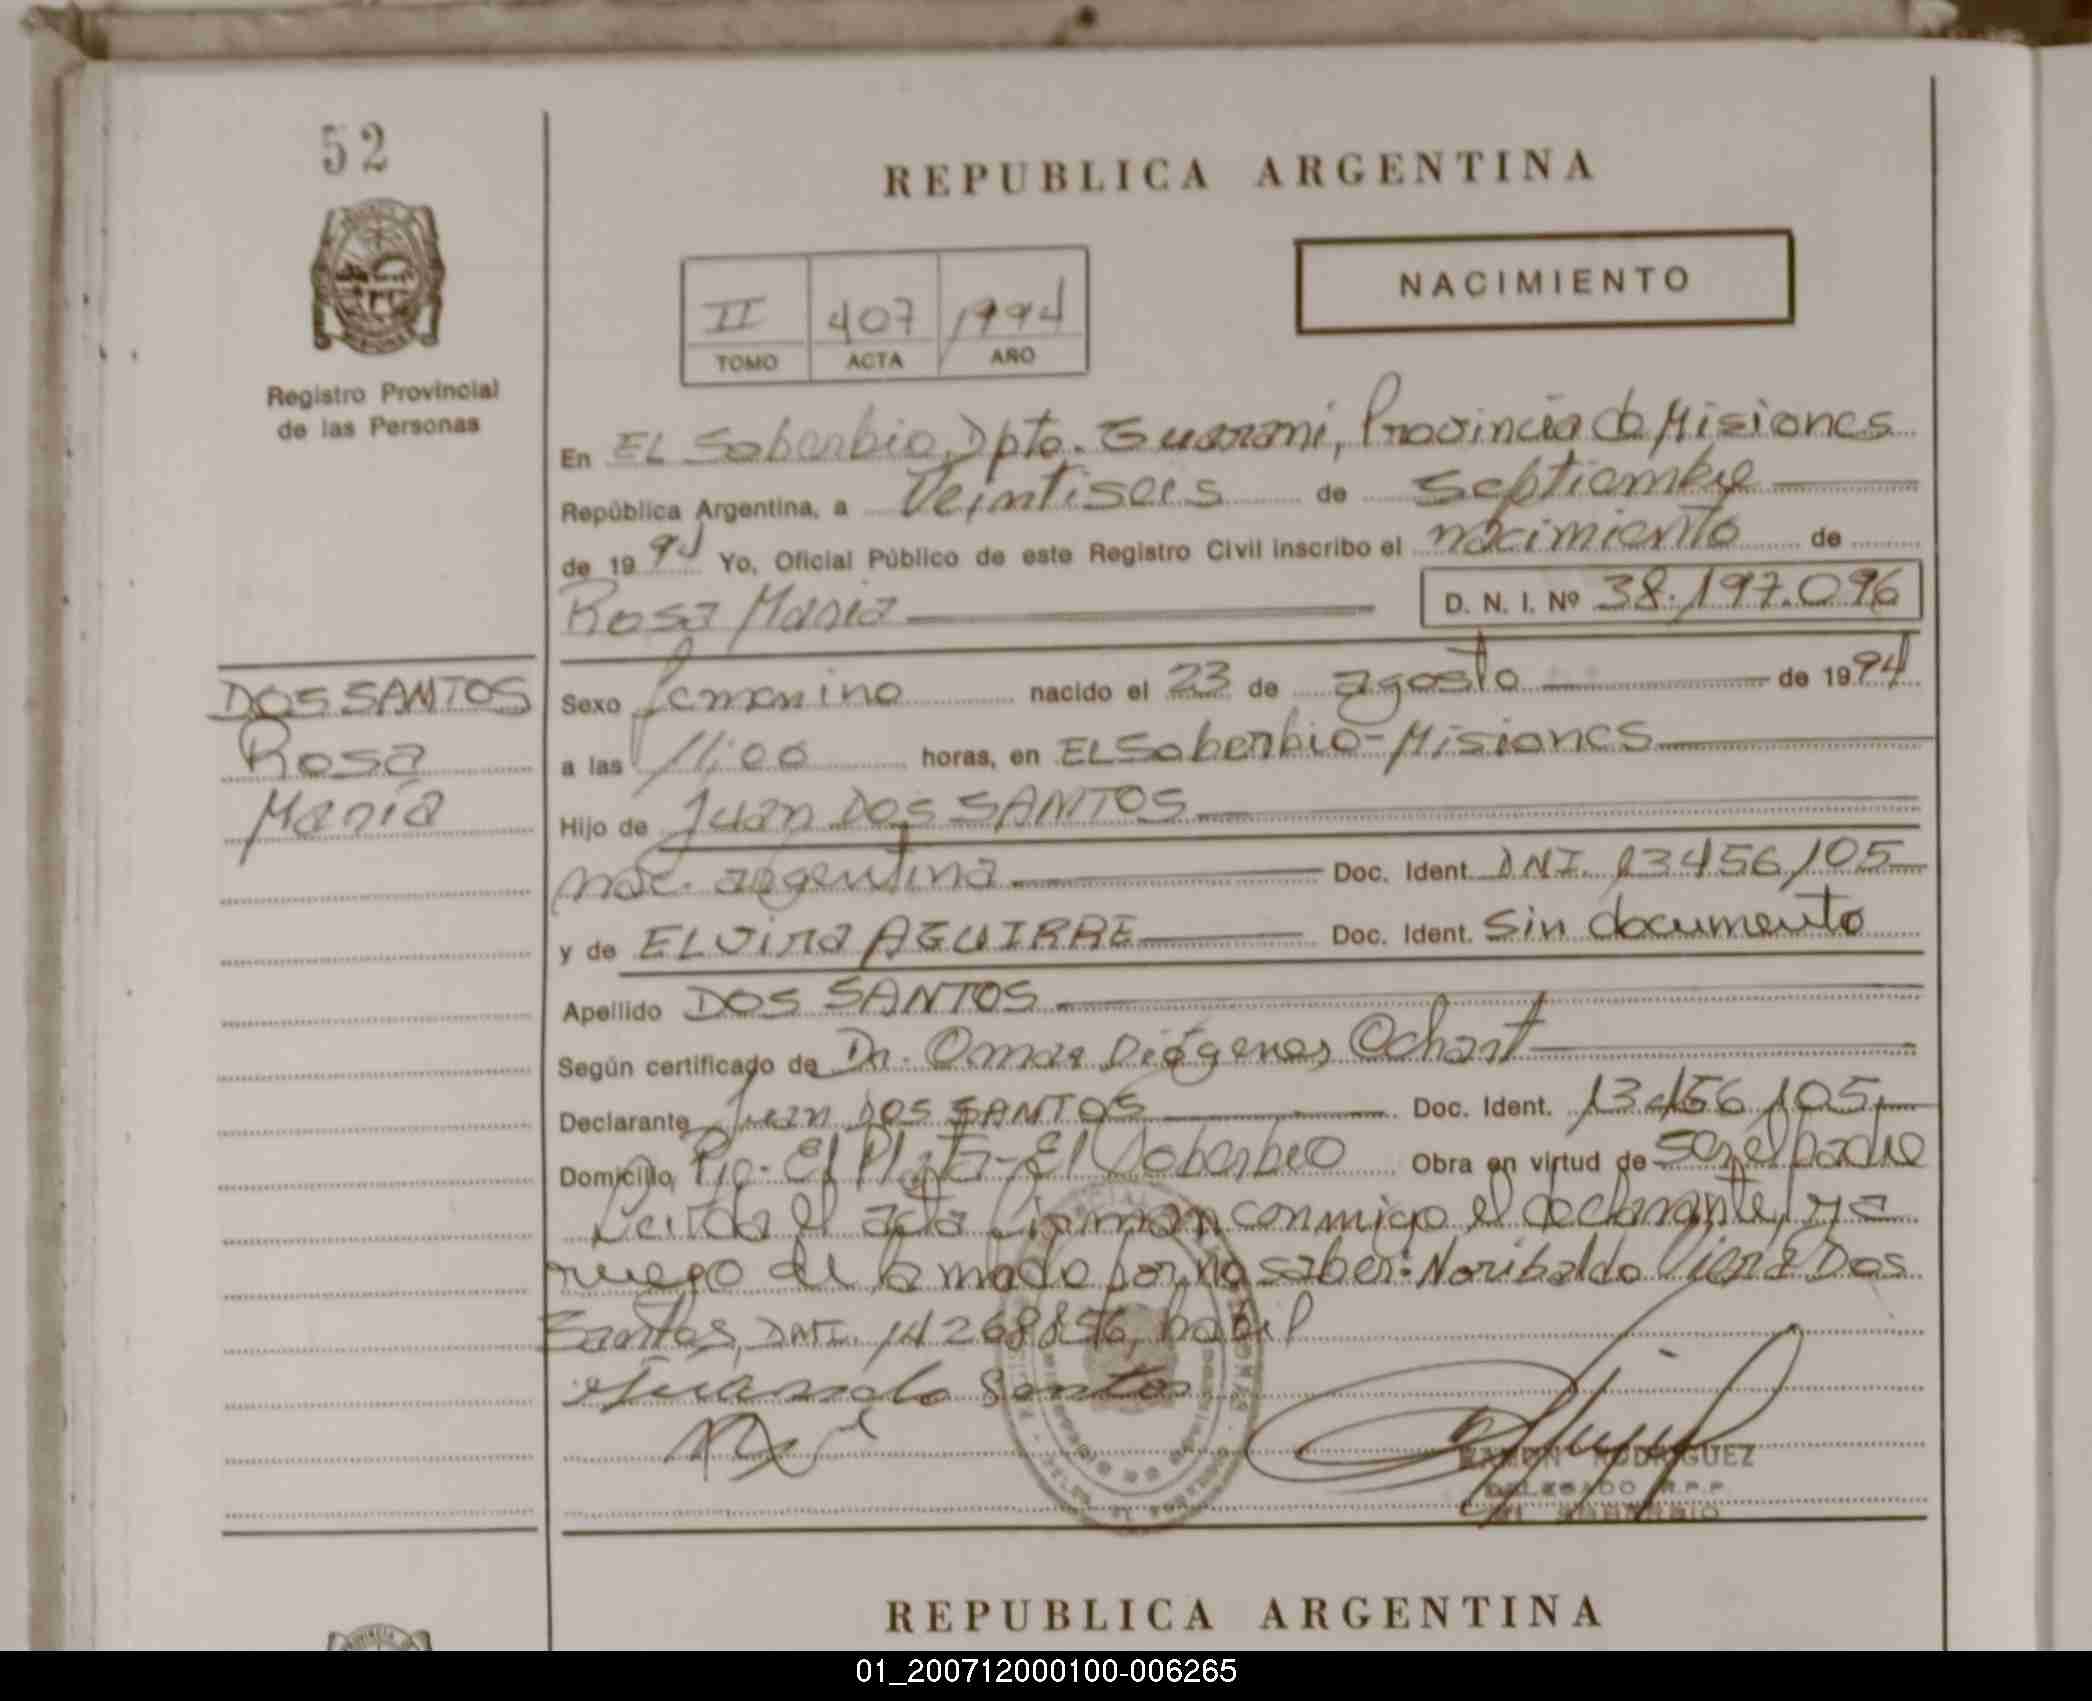 52
REPUBLICA ARGENTINA
NACIMIENTO
II 407 1994
TOMO ACTA AÑO
Registro Provincial
de las Personas
En EL Soberbio, Dpto. Guarani, Provincia de Misiones
República Argentina, a Veintiseis de Septiembre
de 1994 Yo, Oficial Público de este Registro Civil inscribo el nacimiento de
Rosa Maria D. N. I. Nº 38.197.096
DOS SANTOS
Rosa
María
Sexo femenino nacido el 23 de agosto de 1994
a las 11:00 horas, en EL Soberbio - Misiones
Hijo de Juan DOS SANTOS
nac. argentina Doc. Ident. DNI. 13456105
y de ELvira AGUIRRE Doc. Ident. Sin documento
Apellido DOS SANTOS
Según certificado de Dr. Omar Diógenes Ochart
Declarante Juan DOS SANTOS Doc. Ident. 13456105
Domicilio Pje. El Plata - El Soberbio Obra en virtud de ser el padre
Leida el acta firman conmigo el declarante, y a
ruego de la madre por no saber: Noribaldo Viera Dos
Santos, DNI. 14268856, habil
Santos
RAMON RODRIGUEZ
DELEGADO R.P.P.
EL SOBERBIO
REPUBLICA ARGENTINA
01_200712000100-006265